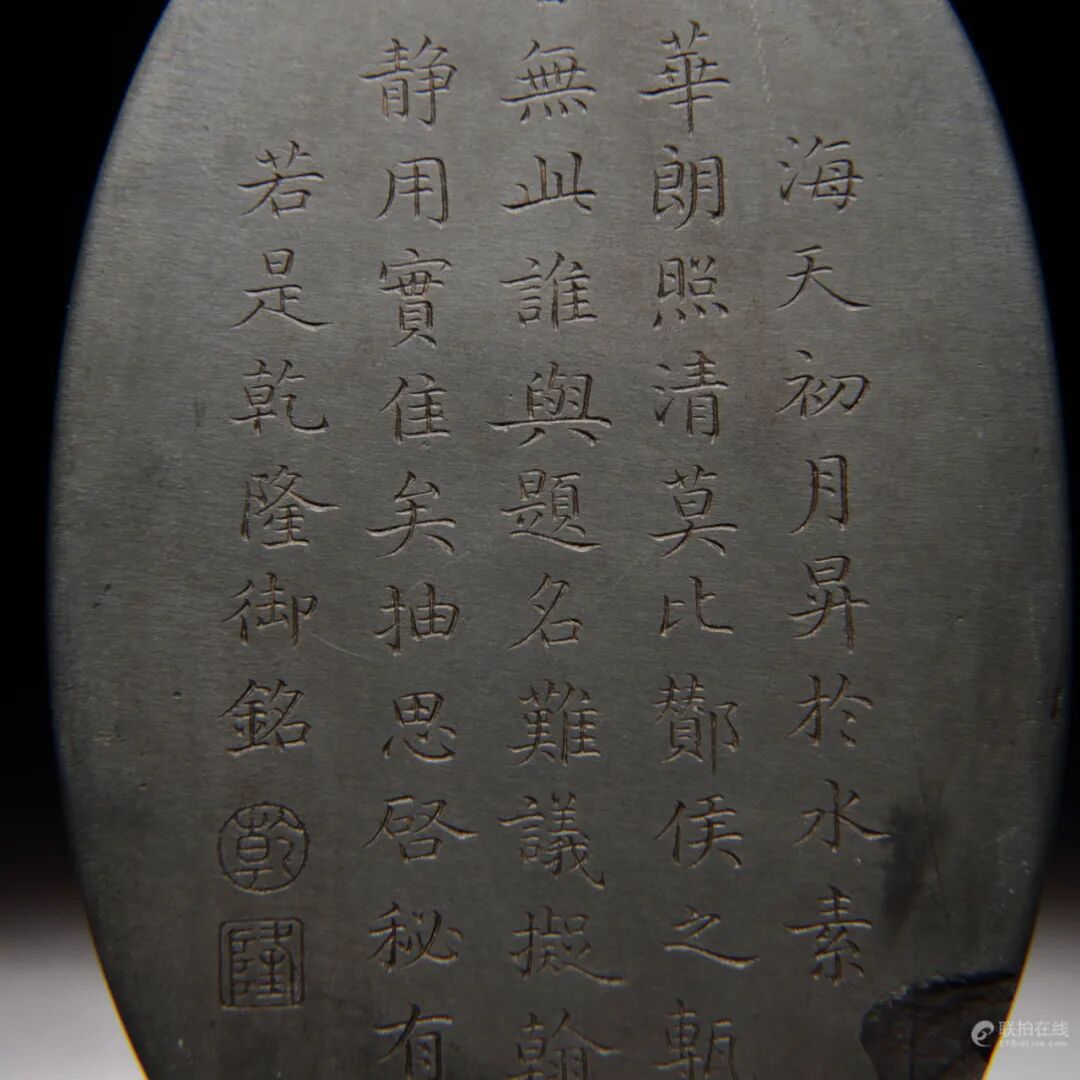 海天初月昇於水素
華朗照清莫比酇侯之
無此誰與題名難議擬翰
静用實佳矣抽思啓秘有
若是乾隆御銘
乾
隆
联拍在线
118idLive.com